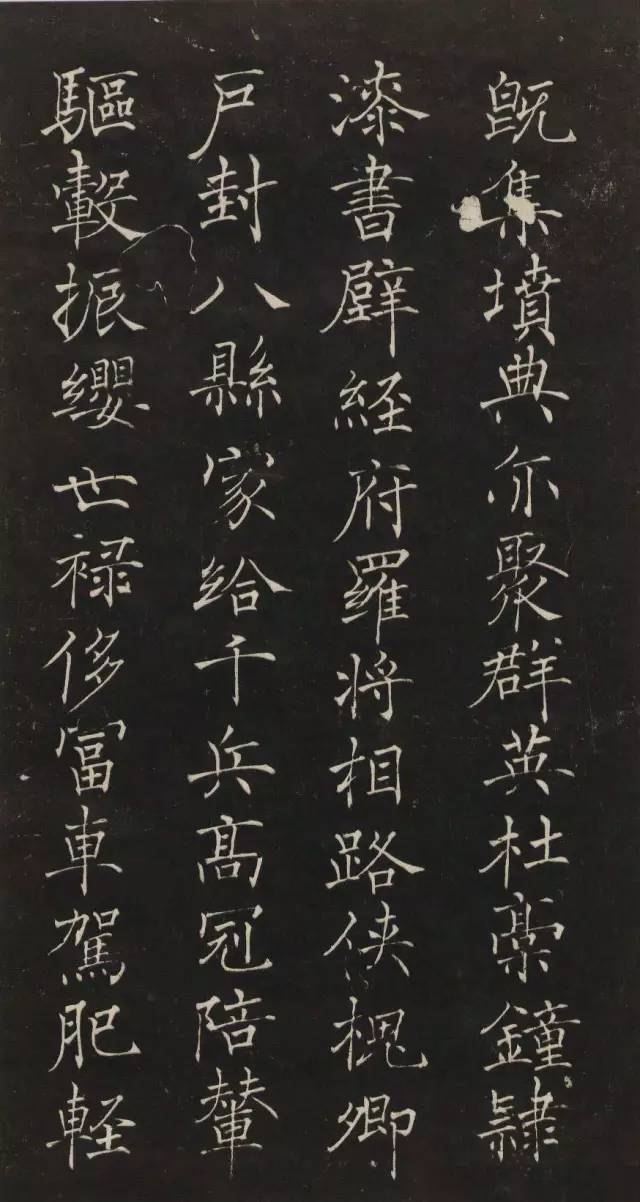 既集墳典亦聚群英杜稾鍾隸
漆書壁經府羅將相路俠槐卿
戶封八縣家給千兵髙冠陪輦
驅轂振纓世祿侈富車駕肥軽